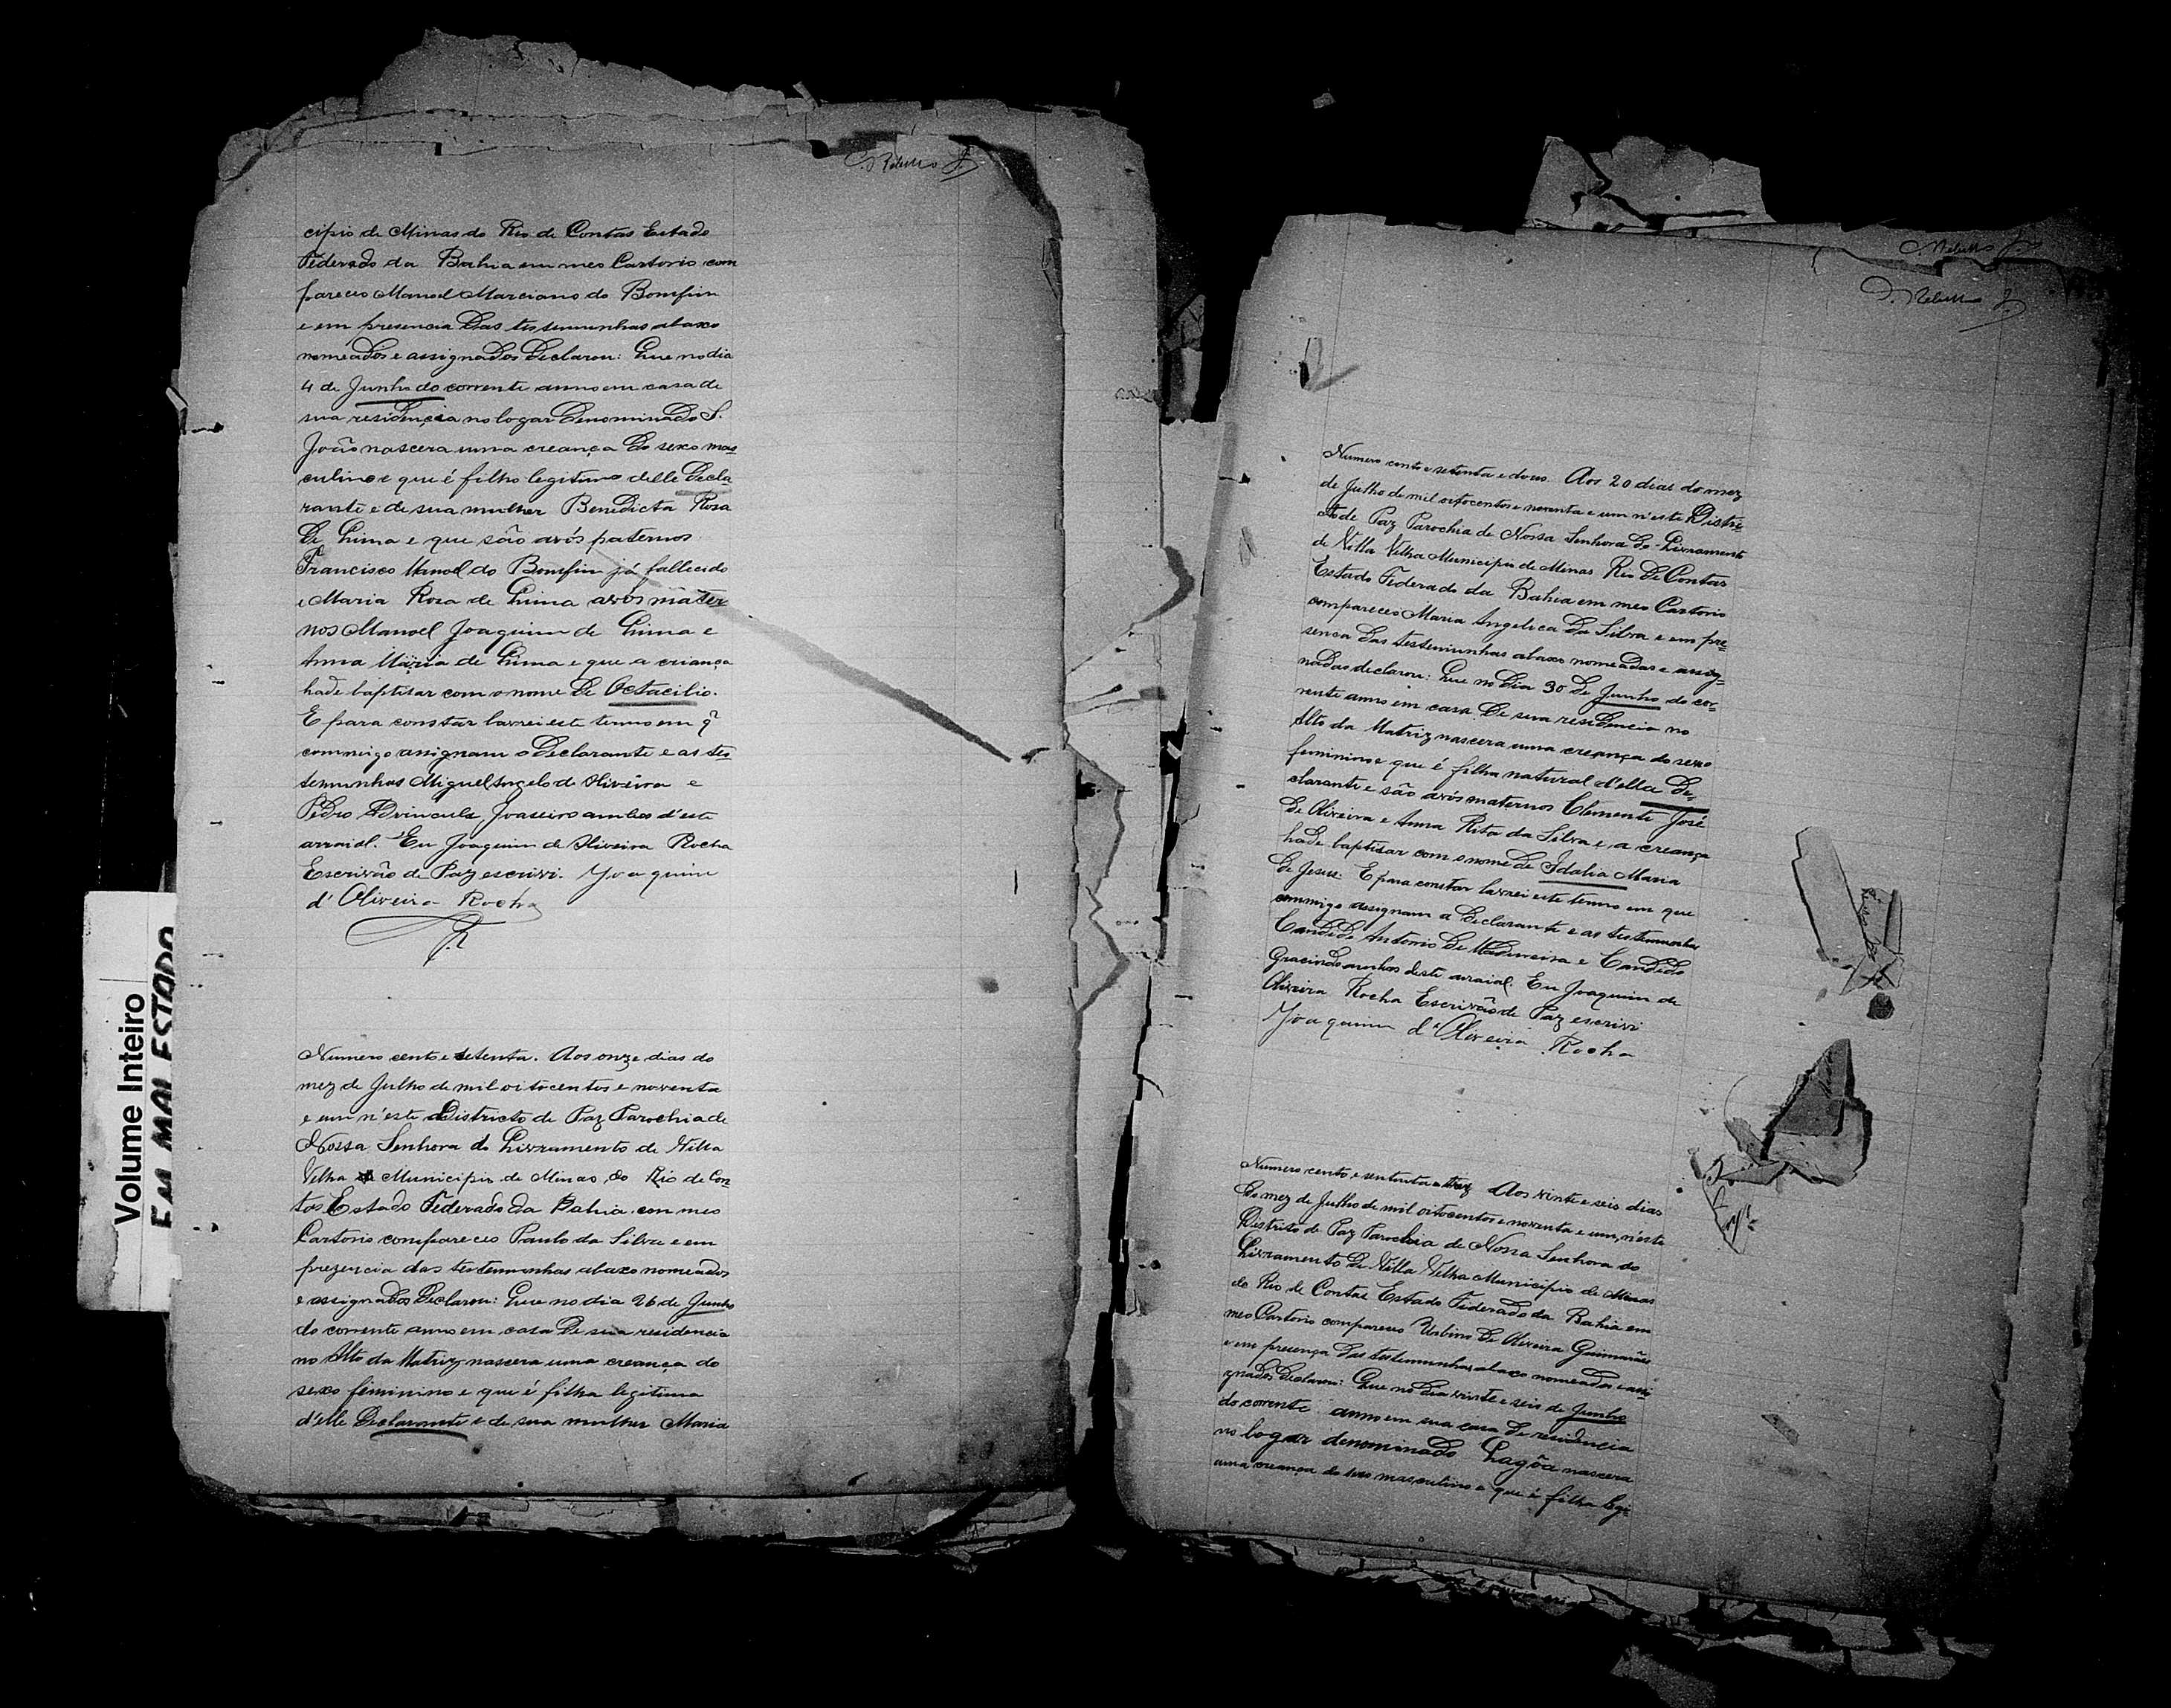 cipio de Minas do Rio de Contas Estado
Federado da Bahia em meo Cartorio com
pareceo Manoel Marciano do Bomfim
e em presencia das testemunhas abaxo
nomeados e assignados declarou: Que no dia
4 de Junho do corrente anno em casa de
sua residencia no logar denominado S.
João nascera uma creança do sexo mas
culino e que é filho legitimo delle decla
rante e de sua mulher Benedicta Rosa
de Lima e que são avós paternos
Francisco Manoel do Bomfim já fallecido
e Maria Rosa de Lima avós mater
nos Manoel Joaquim de Lima e
Anna Maria de Lima e que a criança
hade baptisar com o nome de Octacilio.
E para constar lavrei este termo em q̃
commigo assignam o declarante e as tes
temunhas Miguel Angelo de Oliveira e
Pedro Advincula, Joaseiro ambos d'este
arraial. Eu Joaquim de Oliveira Rocha
Escrivão de Paz escrivi. Joaquim
d' Oliveira Rocha
Numero cento e setenta. Aos onze dias do
mez de Julho de mil oitocentos e noventa
e um n'este Districto de Paz Parochia de
Nossa Senhora do Livramento de Villa
Velha Municipio de Minas do Rio de Con
tas Estado Federado da Bahia em meo
Cartorio compareceo Paulo da Silva e em
prezencia das testemunhas abaxo nomeados
e assignados declarou: Que no dia 26 de Junho
do corrente anno em casa de sua residencia
no Alto da Matriz nascera uma creança do
sexo feminino e que é filha legitima
d'elle declarante e de sua mulher Maria
Volume Inteiro
EM MAL ESTADO
Numero cento e setenta e dous Aos 20 dias do mez
de Julho de mil oitocentos e noventa e um n'este Distri
cto de Paz Parochia de Nossa Senhora do Livramento
de Villa Velha Municipio de Minas Rio de Contas
Estado Federado da Bahia em meo Cartorio
compareceo Maria Angelica da Silva e em pre
senca das testemunhas abaxo nomeadas e assig
nadas declarou: Que no dia 30 de Junho do cor
rente anno em casa de sua residencia no
Alto da Matriz nascera uma creança do sexo
feminino e que é filha natural d'ella de
clarante e são avós maternos Clemente José
de Oliveira e Anna Rita da Silva e a creança
hade baptisar com o nome de Idalia Maria
de Jesus. E para constar lavrei este termo em que
commigo assignam a declarante e as testemunhas
Candido Antonio de Madureira e Candido
Gracindo ambos deste arraial. Eu Joaquim de
Oliveira Rocha Escrivão de Paz escrivi
Joaquim d'Oliveira Rocha
Numero cento e sententa e trez Aos vinte e seis dias
do mez de Julho de mil oitocentos e noventa e um, n'este
Distrito de Paz Parochia de Nossa Senhora do
Livramento de Villa Velha Municipio de Minas
do Rio de Contas Estado Federado da Bahia em
meo Cartorio compareceo Urbino de Oliveira Guimarães
e em presença das testemunhas abaxo nomeados e assi
gnados declarou: Que no dia vinte e seis de Junho
do corrente anno em sua casa de residencia
no logar denominado Lagôa nascera
uma creança do sexo masculino e que é filha legi